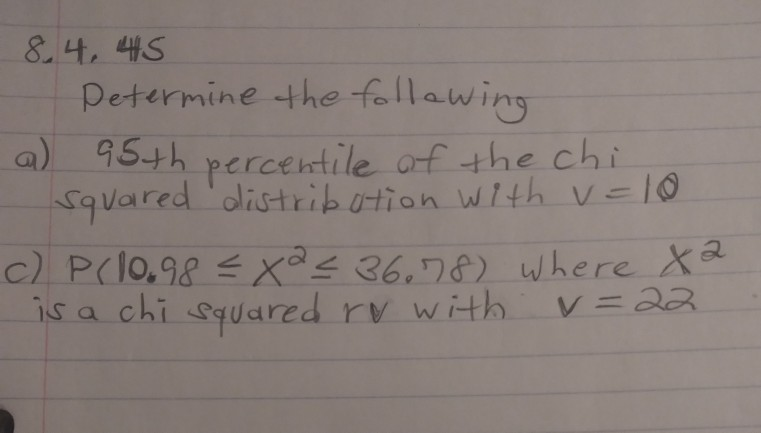 8.4.45
Determine the following
a) 95th percentile of the chi
squared distribution with v=10
c) P(10.98 ≤ X² ≤ 36.78) where X²
is a chi squared rv with v = 22